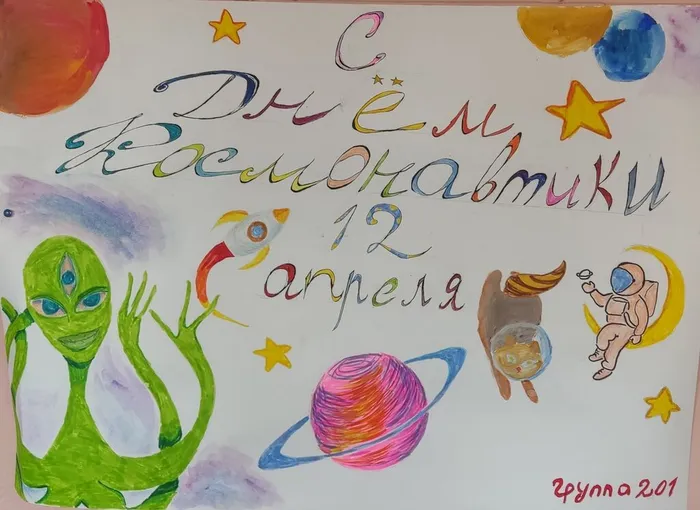 С
Днём
Космонавтики
12
апреля
группа 201